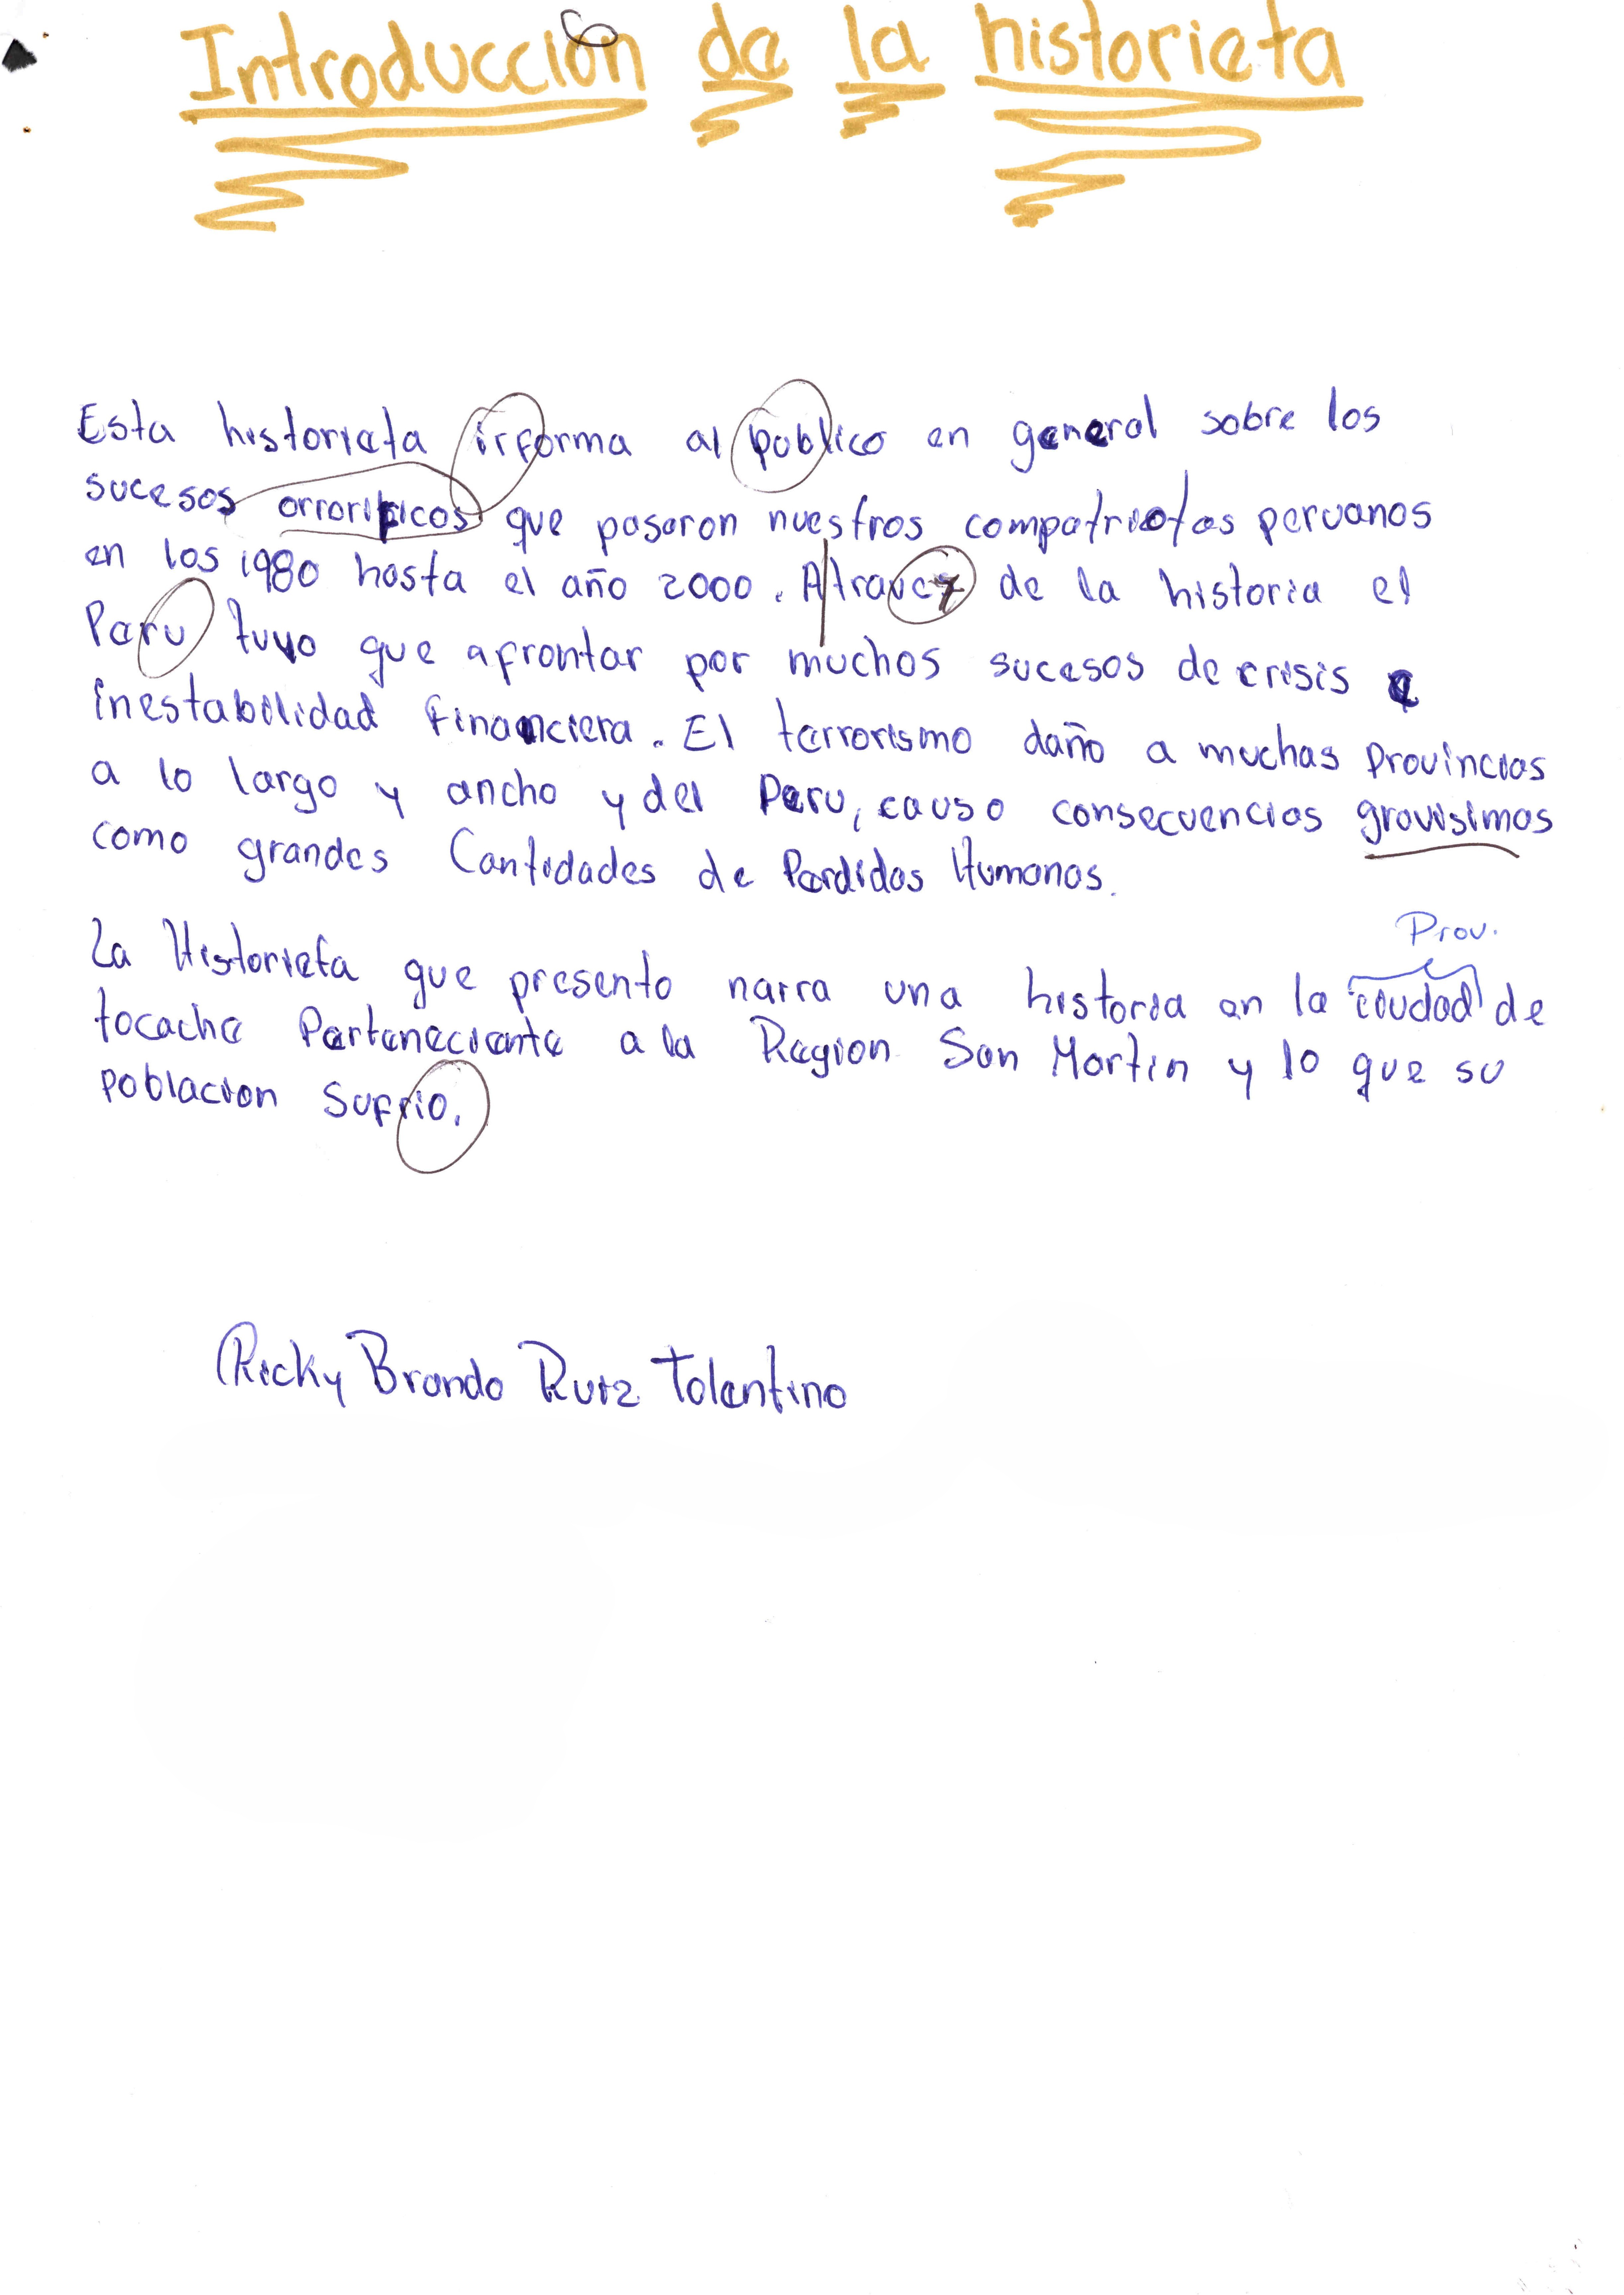 Introducción de la historieta
Esta historieta irforma al publico en general sobre los
sucesos orrorificos que pasaron nuestros compatriotas peruanos
en los 1980 hasta el año 2000. Atravez de la historia el
Peru tuvo que afrontar por muchos sucesos de crisis e
inestabilidad financiera. El terrorismo daño a muchas provincias
a lo largo y ancho y del Peru, causo consecuencias gravisimas
como grandes Cantidades de Perdidas Humanas.
Prov.
La Historieta que presento narra una historia en la ciudad de
tocache Perteneciente a la Region San Martin y lo que su
poblacion Sufrio.
Ricky Brando Ruiz Tolentino